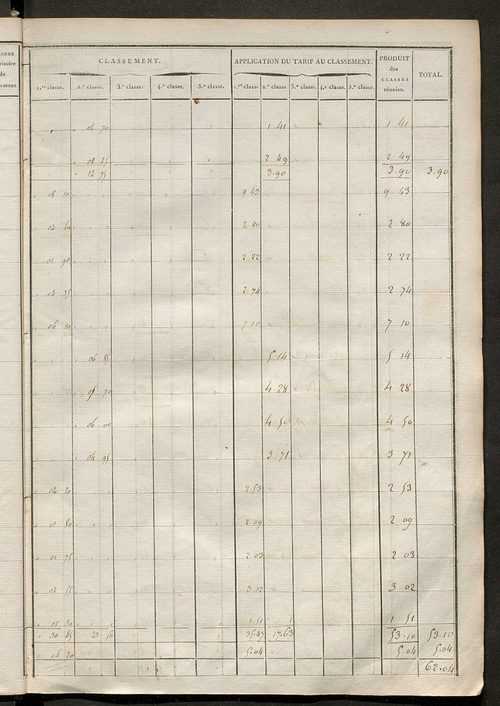 CLASSEMENT. APPLICATION DU TARIF AU CLASSEMENT. PRODUIT des CLASSES réunies. TOTAL.
1.re classe. 2.e classe. 3.e classe. 4.e classe. 5.e classe. 1.re classe 2.e classe 3.e classe. 4.e classe. 5.e classe.
04 70 1 41 1 41
08 25 2 49 2 49
12 95 3.90 3.90 3.90
08 10 9 43 9 43
2 80 2 80
01 90 2 22 2 22
2 74 2 74
06 10 7 10 7 10
5 14 5 14
70 4 28 4 28
06 00 4 50 4 50
04 95 3 71 3 71
2 53 2 53
01 80 2 09 2 09
01 75 2 03 2 03
3 02 3 02
01 30 1 51 1 51
30 45 23 50 35.47 17.63 53.10 53.10
20 5.04 5.04 5.04
62.04